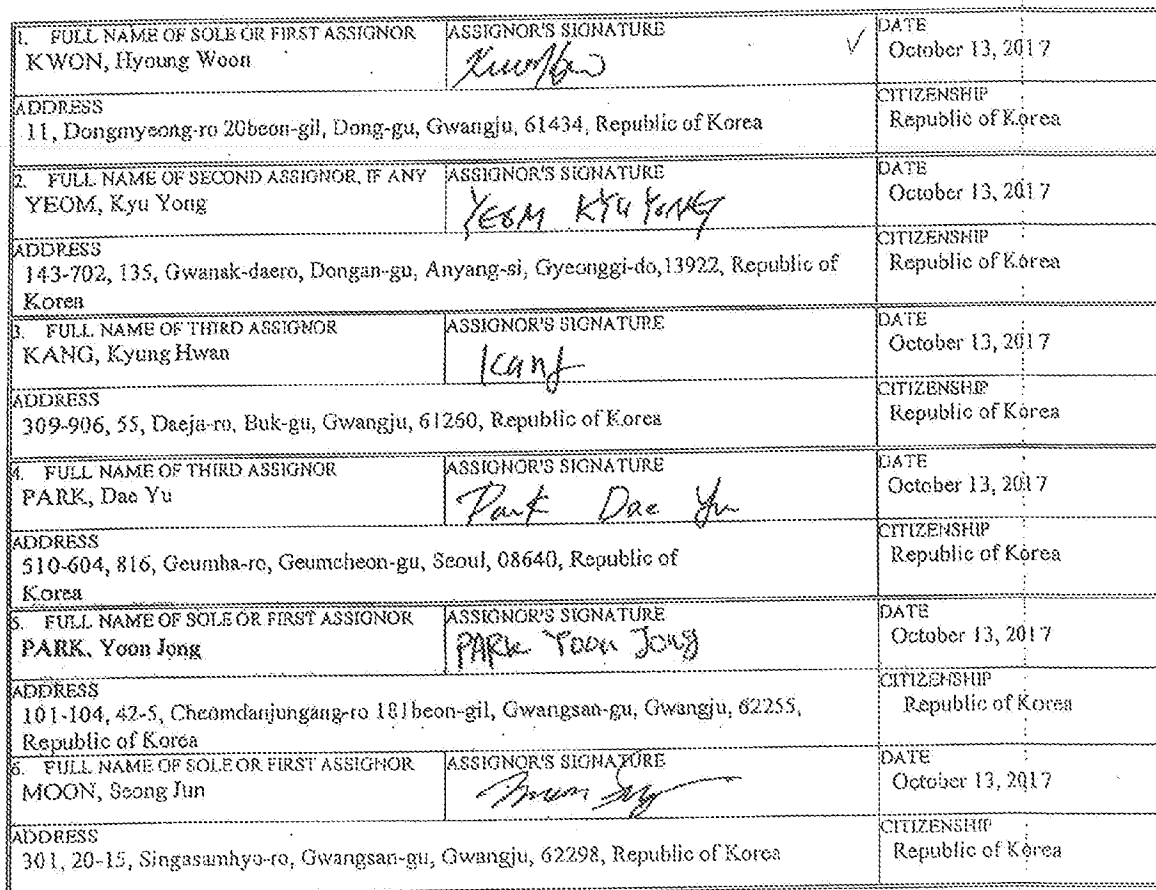 1. FULL NAME OF SOLE OR FIRST ASSIGNOR
KWON, Hyoung Woon
ASSIGNOR'S SIGNATURE
DATE
October 13, 2017
ADDRESS
11, Dongmyeong-ro 20beon-gil, Dong-gu, Gwangju, 61434, Republic of Korea
CITIZENSHIP
Republic of Korea
2. FULL NAME OF SECOND ASSIGNOR, IF ANY
YEOM, Kyu Yong
ASSIGNOR'S SIGNATURE
YEOM KYU YONG
DATE
October 13, 2017
ADDRESS
143-702, 135, Gwanak-daero, Dongan-gu, Anyang-si, Gyeonggi-do,13922, Republic of
Korea
CITIZENSHIP
Republic of Korea
3. FULL NAME OF THIRD ASSIGNOR
KANG, Kyung Hwan
ASSIGNOR'S SIGNATURE
Kang
DATE
October 13, 2017
ADDRESS
309-906, 55, Daeja-ro, Buk-gu, Gwangju, 61260, Republic of Korea
CITIZENSHIP
Republic of Korea
4. FULL NAME OF THIRD ASSIGNOR
PARK, Dae Yu
ASSIGNOR'S SIGNATURE
Park Dae Yu
DATE
October 13, 2017
ADDRESS
510-604, 816, Geumha-ro, Geumcheon-gu, Seoul, 08640, Republic of
Korea
CITIZENSHIP
Republic of Korea
5. FULL NAME OF SOLE OR FIRST ASSIGNOR
PARK, Yoon Jong
ASSIGNOR'S SIGNATURE
PARK Yoon Jong
DATE
October 13, 2017
ADDRESS
101-104, 42-5, Cheomdanjungang-ro 181beon-gil, Gwangsan-gu, Gwangju, 62255,
Republic of Korea
CITIZENSHIP
Republic of Korea
6. FULL NAME OF SOLE OR FIRST ASSIGNOR
MOON, Seong Jun
ASSIGNOR'S SIGNATURE
DATE
October 13, 2017
ADDRESS
301, 20-15, Singasamhyo-ro, Gwangsan-gu, Gwangju, 62298, Republic of Korea
CITIZENSHIP
Republic of Korea